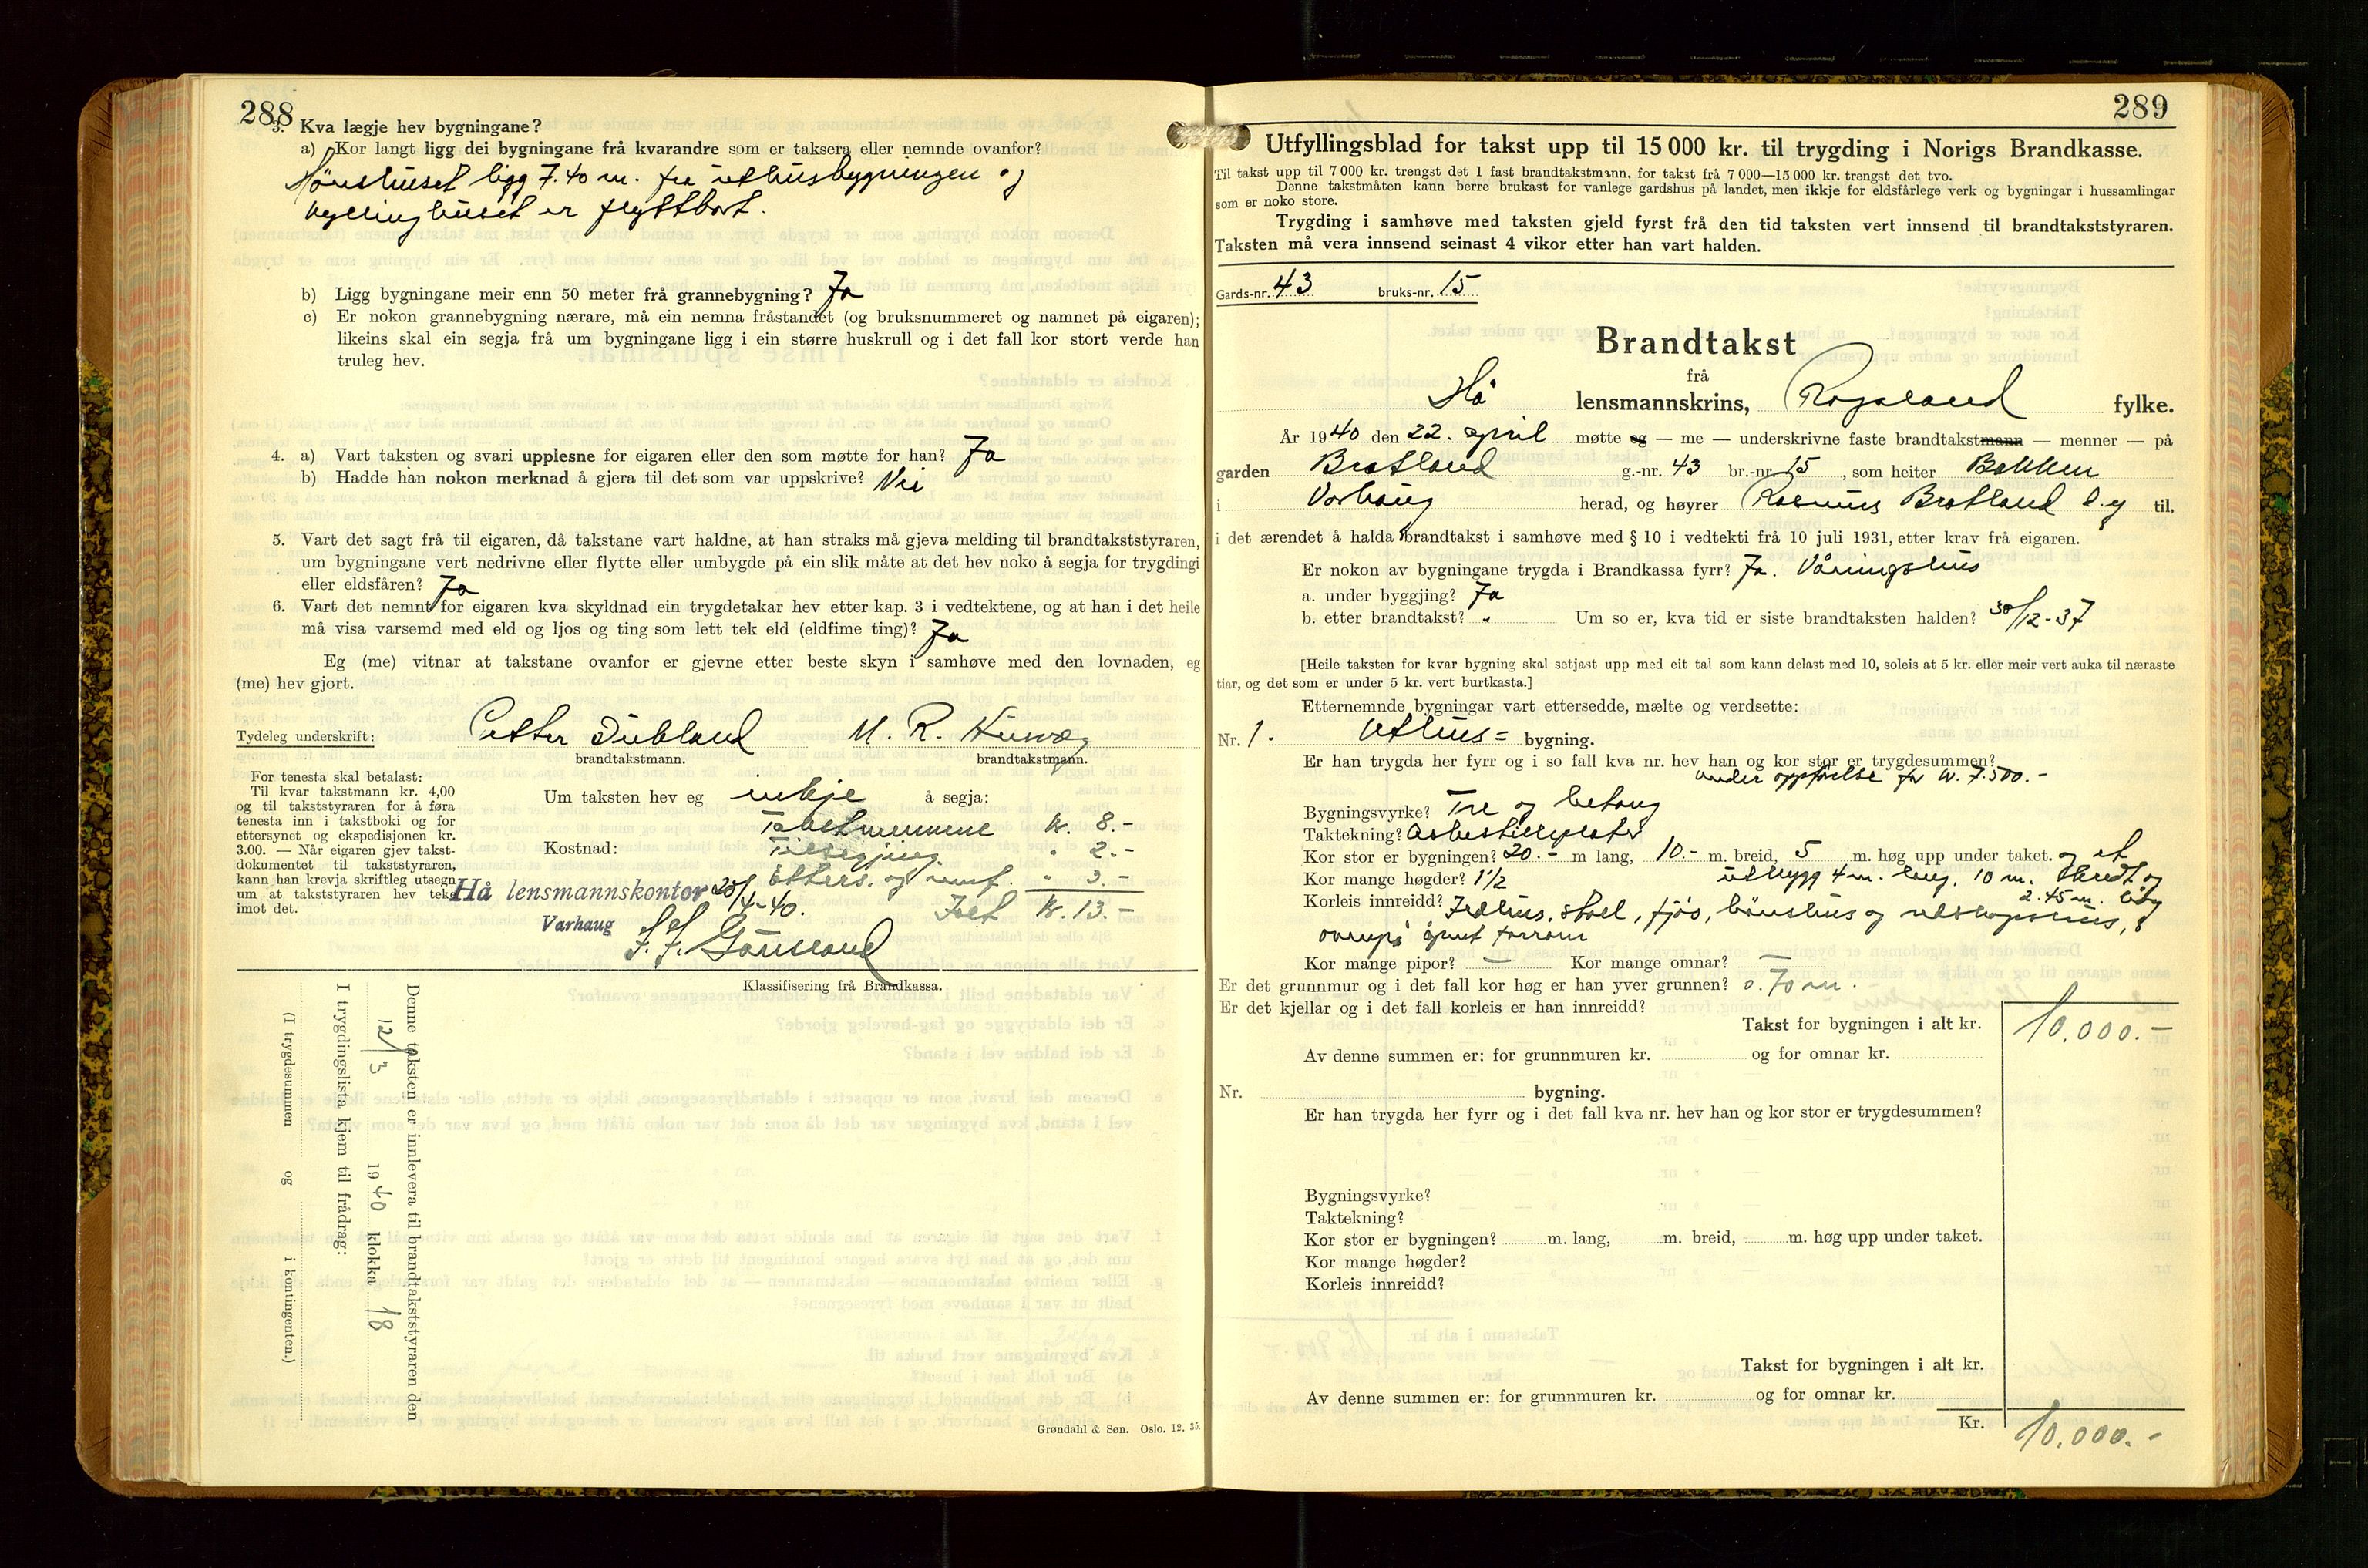 288
3. Kva lægje hev bygningane?
a) Kor langt ligg dei bygningane frå kvarandre som er taksera eller nemnde ovanfor?
Hønshuset ligg 7.40 m. fra uthusbygningen og
kyllinghuset er flyttbart.
b) Ligg bygningane meir enn 50 meter frå grannebygning? Ja
c) Er nokon grannebygning nærare, må ein nemna fråstandet (og bruksnummeret og namnet på eigaren);
likeins skal ein segja frå um bygningane ligg i ein større huskrull og i det fall kor stort verde han
truleg hev.
4. a) Vart taksten og svari upplesne for eigaren eller den som møtte for han? Ja
b) Hadde han nokon merknad å gjera til det som var uppskrive? Nei
5. Vart det sagt frå til eigaren, då takstane vart haldne, at han straks må gjeva melding til brandtakststyraren,
um bygningane vert nedrivne eller flytte eller umbygde på ein slik måte at det hev noko å segja for trygdingi
eller eldsfåren? Ja
6. Vart det nemnt for eigaren kva skyldnad ein trygdetakar hev etter kap. 3 i vedtektene, og at han i det heile
må visa varsemd med eld og ljos og ting som lett tek eld (eldfime ting)? Ja
Eg (me) vitnar at takstane ovanfor er gjevne etter beste skyn i samhøve med den lovnaden, eg
(me) hev gjort.
Tydeleg underskrift: Petter Dubland M. R.
brandtakstmann. brandtakstmann.
For tenesta skal betalast:
Til kvar takstmann kr. 4,00
og til takststyraren for å føra
tenesta inn i takstboki og for
ettersynet og ekspedisjonen kr.
3.00. — Når eigaren gjev takst-
dokumentet til takststyraren,
kann han krevja skriftleg utsegn
um at takststyraren hev teke
imot det.
Um taksten hev eg inkje å segja:
Kostnad: Takstmennene kr. 8.-
Tilsegjing " 2.-
Etters. og innf. " 3.-
Ialt kr. 13.-
Hå lensmannskontor 25/4-40.
Varhaug
Klassifisering frå Brandkassa.
Denne taksten er innlevera til brandtakststyraren den
12/3 1940 klokka 18
I trygdingslista kjem til frådrag:
(I trygdesummen og i kontingenten.)
Grøndahl & Søn. Oslo. 12. 35.
289
Utfyllingsblad for takst upp til 15 000 kr. til trygding i Norigs Brandkasse.
Til takst upp til 7 000 kr. trengst det 1 fast brandtakstmann, for takst frå 7 000—15 000 kr. trengst det tvo.
Denne takstmåten kann berre brukast for vanlege gardshus på landet, men ikkje for eldsfårlege verk og bygningar i hussamlingar
som er noko store.
Trygding i samhøve med taksten gjeld fyrst frå den tid taksten vert innsend til brandtakststyraren.
Taksten må vera innsend seinast 4 vikor etter han vart halden.
Gards-nr. 43 bruks-nr. 15
Brandtakst
frå
Hå lensmannskrins, Rogaland fylke.
År 1940 den 22. april møtte eg — me — underskrivne faste brandtakstmann — menner — på
garden Bratland g.-nr. 43 br.-nr. 15, som heiter Bakken
i Varhaug herad, og høyrer Rasmus Bratland d.y til,
i det ærendet å halda brandtakst i samhøve med § 10 i vedtekti frå 10 juli 1931, etter krav frå eigaren.
Er nokon av bygningane trygda i Brandkassa fyrr? Ja. Våningshus
a. under byggjing? Ja
b. etter brandtakst? " Um so er, kva tid er siste brandtaksten halden? 30/12-37
[Heile taksten for kvar bygning skal setjast upp med eit tal som kann delast med 10, soleis at 5 kr. eller meir vert auka til næraste
tiar, og det som er under 5 kr. vert burtkasta.]
Etternemnde bygningar vart ettersedde, mælte og verdsette:
Nr. 1. Uthus= bygning.
Er han trygda her fyrr og i so fall kva nr. hev han og kor stor er trygdesummen?
under oppførelse for kr. 7.500.-
Bygningsvyrke? Tre og betong
Taktekning? Asbestskifplater
Kor stor er bygningen? 20.- m lang, 10.- m. breid, 5 m. høg upp under taket. og et
Kor mange høgder? 1½ utbygg 4 m. lang, 10 m. bredt og
2.45 m. høg
Korleis innreidd? Fedhus, stall, fjøs, hønshus og redskapshus,
ovenpå åpent tørrom
Kor mange pipor? — Kor mange omnar? —
Er det grunnmur og i det fall kor høg er han yver grunnen? 0.70 m.
Er det kjellar og i det fall korleis er han innreidd?
Takst for bygningen i alt kr. 10.000.-
Av denne summen er: for grunnmuren kr. og for omnar kr.
Nr. bygning.
Er han trygda her fyrr og i det fall kva nr. hev han og kor stor er trygdesummen?
Bygningsvyrke?
Taktekning?
Kor stor er bygningen? m. lang, m. breid, m. høg upp under taket.
Kor mange høgder?
Korleis innreidd?
Takst for bygningen i alt kr.
Av denne summen er: for grunnmuren kr. og for omnar kr.
Kr. 10.000.-